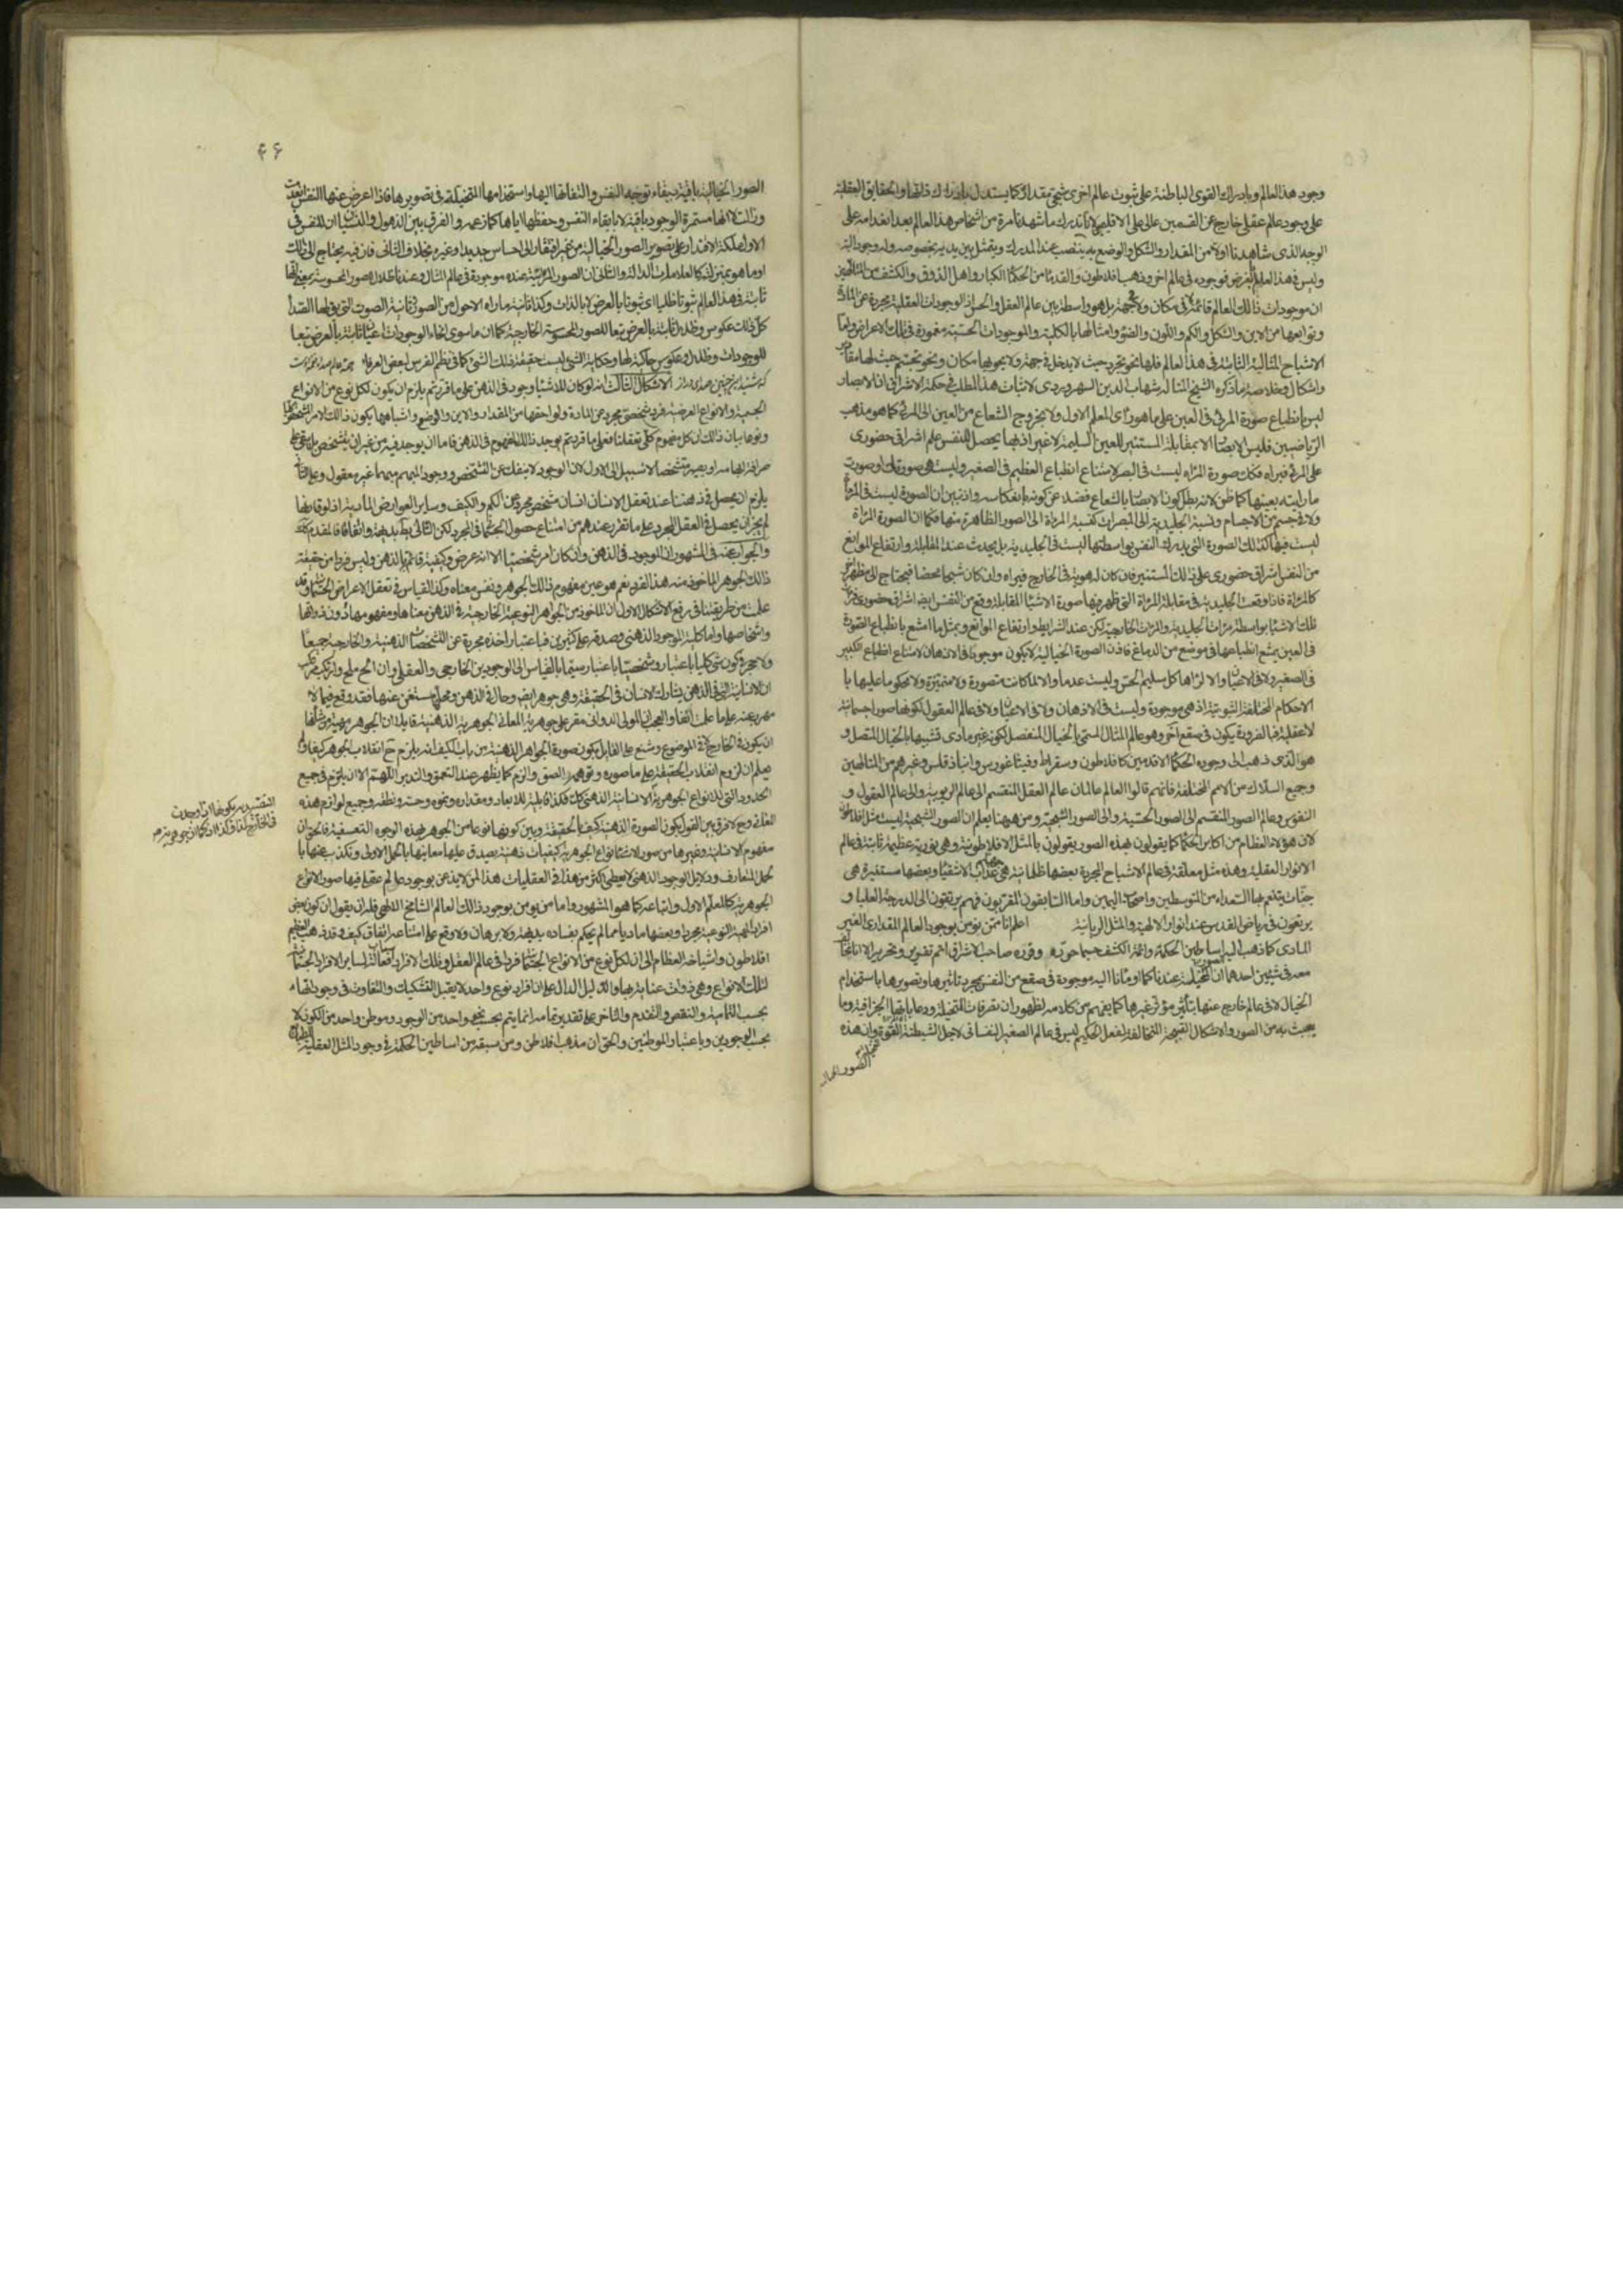 وجود هذا العالم وبادراك القوى الباطنة على ثبوت عالم اخرى شبحى مقدارى كما يستدل بادراك ذاتها والحقايق العقلية
على وجود عالم عقلى خارج عن القسمين عالى على الاقليمين لانا ندرك ما شهدنا مرة من اشخاص هذا العالم بعد انعدامه على
الوجه الذى شاهدنا اولا من المقدار والشكل والوضع به ينتصب عند المدرك ويتمثل بين يديه بخصوصه وله وجود البتة
وليس فى هذا العالم بالفرض فوجوده فى عالم اخر وذهب افلاطون والقدماء من الحكماء الكبار واهل الذوق والكشف من المتالهين
ان موجودات ذالك العالم قائمة لا فى مكان ولا جهة بل هو واسطة بين عالم العقل والحس اذ الموجودات العقلية مجردة عن المادة
وتوابعها من الاين والشكل والكم واللون والضوء وامثالها بالكلية والموجودات الحسية مغمورة فى تلك الاعراض واما
الاشباح المثالية الثابتة فى هذا العالم فلها نحو تجرد حيث لا يدخل فى جهة ولا يحويها مكان ونحو تجسم حيث لها مقادير
واشكال وخلاصة ما ذكره الشيخ المتاله شهاب الدين السهروردى لاثبات هذا المطلب فى حكمة الاشراق ان الابصار
ليس بانطباع صورة المرئى فى العين على ما هو رأى المعلم الاول ولا بخروج الشعاع من العين الى المرئى كما هو مذهب
الرياضيين فليس الابصار الا بمقابلة المستنير للعين السليمة لا غير اذ بها يحصل للنفس علم اشراقى حضورى
على المرئى فيراه فكك صورة المرآة ليست فى البصر لامتناع انطباع العظيم فى الصغير وليست هى صورتك او صورة
ما رايته بعينها كما ظن لانه بطل كون الابصار بالشعاع فضلا عن كونه بانعكاسه واذ تبين ان الصورة ليست فى المرآة
ولا فى جسم من الاجسام ونسبة الجليدية الى المبصرات كنسبة المرآة الى الصور الظاهرة منها فكما ان الصورة المرآة
ليست فيها كذلك الصورة التى يدرك النفس بواسطتها ليست فى الجليدية بل يحدث عند المقابلة وارتفاع الموانع
من النفس اشراق حضورى على ذلك المستنير فان كان له هوية فى الخارج فيراه وان كان شبحا محضا فيحتاج الى مظهر اخر
كالمرآة فاذا وقعت الجليدية فى مقابلة المرآة التى ظهر فيها صورة الاشياء المقابلة وقع من النفس ايضا اشراق حضورى فرات
تلك الاشياء بواسطة مرآت الجليدية والمرآت الخارجية لكن عند الشرايط وارتفاع الموانع وبمثل ما امتنع به انطباع الصورة
فى العين يمتنع انطباعها فى موضع من الدماغ فاذن الصورة الخيالية لا يكون موجودة فى الاذهان لامتناع انطباع الكبير
فى الصغير ولا فى الاعيان والا لراها كل سليم الحس وليست عدما والا لما كانت متصورة ولا متميزة ولا محكوما عليها با
الاحكام المختلفة الثبوتية اذ هى موجودة وليست فى الاذهان ولا فى الاعيان ولا فى عالم العقول لكونها صورا جسمانية
لا عقلية فبالضرورة يكون فى صقع آخر وهو عالم المثال المسمى بالخيال المنفصل لكونه غير مادى تشبيها بالخيال المتصل و
هو الذى ذهب الى وجوده الحكماء الاقدمين كافلاطون وسقراط وفيثاغورس وانباذقلس وغيرهم من المتالهين
وجميع السلاك من الامم المختلفة فانهم قالوا العالم عالمان عالم العقل المنقسم الى عالم الربوبية والى عالم العقول و
النفوس وعالم الصور المنقسم الى الصور الحسية والى الصور الشبحية ومن ههنا يعلم ان الصور الشبحية ليست مثل افلاطون
لان هؤلاء العظام من اكابر الحكما كما يقولون بهذه الصور يقولون بالمثل الافلاطونية وهى نورية عظيمة ثابتة فى عالم
الانوار العقلية وهذه مثل معلقة فى عالم الاشباح المجردة بعضها ظلمانية هى عذاب الاشقياء وبعضها مستنيرة هى
جنات يتنعم بها السعداء من المتوسطين واصحاب اليمين واما السابقون المقربون فهم يرتقون الى الدرجة العليا و
يرتقون فى رياض القدس عند انوار الالهية والمثل الربانية اعلم انا ممن يؤمن بوجود العالم المقدارى الغير
المادى كما ذهب اليه اساطين الحكمة وائمة الكشف حسبما حرره وقرره صاحب الاشراق اتم تقرير وتحرير الا انا نخالف
معه فى شيئين احدهما ان الصور المتخيلة عندنا كما اومأنا اليه موجودة فى صقع من النفس بمجرد تاثيرها وتصويرها باستخدام
الخيال لا فى عالم خارج عنها بتأثير مؤثر غيرها كما يفهم من كلامه لظهور ان تصرفات المتخيلة ودعاباتها الجزافية وما
يعبث به من الصور والاشكال القبيحة المخالفة لفعل الحكيم ليس فى عالم الصغير النفسانى لاجل شيطنة القوة وان هذه
۴۶
الصور الخيالية باقية ببقاء توجه النفس والتفاتها اليها واستخدامها المتخيلة فى تصويرها فاذا اعرض عنها النفس انعدمت
وزالت لا انها مستمرة الوجود باقية لا بابقاء النفس وحفظها اياها كما زعمه والفرق بين الذهول والنسيان ان للنفس فى
الاول ملكة الاقتدار على تصوير الصور الخيالية من غير افتقار الى احساس جديد او غيره بخلاف الثانى فان فيه يحتاج الى ذلك
او ما هو بمنزلته كالعلامات الدالة والثانى ان الصور المرآتية عنده موجودة فى عالم المثال وعندنا ظلال للصور المحسوسة بمعنى انها
ثابتة فى هذا العالم ثبوتا ظليا اى ثبوتا بالعرض لا بالذات وكذا ثانية ما يراه الاحول من الصور وثانية الصوت التى يق لها الصدا
كل ذلك عكوس وظلال ثابتة بالعرض تبعا للصور المحسوسة الخارجية كما ان ما سوى انحاء الوجودات اعيان ثابتة بالعرض تبعا
للوجودات وظلال وعكوس حاكية لها وحكاية الشئ ليست حقيقة ذلك الشئ كما فى نظم الفرس لبعض العرفاء همه عالم صداى نغمه اوست
كه شنيد اين چنين صداى دراز الاشكال الثالث انه لو كان للاشياء وجود فى الذهن على ما قررتم يلزم ان يكون لكل نوع من الانواع
الجسمية والانواع العرضية فرد شخصى مجرد عن المادة ولواحقها من المقدار والاين والوضع واشباهها يكون ذالك الامر الشخصى كليا
ونوعا بيان ذالك ان كل مفهوم كلى تعقلنا فعلى ما قررتم يوجد ذالك المفهوم فى الذهن فاما ان يوجد فيه من غير ان يتشخص بل يبقى على
صرافة ابهامه او يصير متشخصا لا سبيل الى الاول لان الوجود لا ينفك عن التشخص ووجود المبهم مبهما غير معقول وعلى الثانى
يلزم ان يحصل فى ذهننا عند تعقل الانسان انسان مشخص مجرد عن الكم والكيف وساير العوارض المادية اذ لو قارنها
لم يجز ان يحصل فى العقل المجرد على ما تقرر عندهم من امتناع حصول الجسمانى فى المجرد لكن التالى بط بديهة واتفاقا فالمقدم كك
والجواب عنه فى المشهور ان الموجود فى الذهن وان كان امرا شخصيا الا انه عرض وكيفية قائم بالذهن وليس فردا من حقيقة
ذالك الجوهر الماخوذ منه هذا الفرد نعم هو عين مفهوم ذالك الجوهر ونفس معناه وكذا القياس فى تعقل الاعراض الجسمانية وقد
علمت من طريقتنا فى رفع الاشكال الاول ان الماخوذ من الجواهر النوعية الخارجية فى الذهن معناها ومفهومها دون ذواتها
واشخاصها واما كلية الموجود الذهنى وصدقه على كثيرين فباعتبار اخذه مجردة عن التشخصات الذهنية والخارجية جميعا
ولا حجر فى كون شئ كليا باعتبار وشخصيا باعتبار سيما بالقياس الى الوجودين الخارجى والعقلى وان الح ملح وارتكب مرتكب
ان الانسانية التى فى الذهن يشارك الانسان فى الحقيقة وهى جوهر ايضا وحال فى الذهن ومحلها مستغن عنها فقد وقع فيما لا
مهرب عنه على ما علمت انفا والعجب ان المولى الدوانى مصر على جوهرية المعانى الجوهرية الذهنية قايلا ان الجوهر مهية من شأنها
ان يكون فى الخارج لا فى الموضوع وشنع على القايل بكون صورة الجواهر الذهنية من باب الكيف انه يلزم ح انقلاب الجوهر كيفا ولم
يعلم ان لزوم انقلاب الحقيقة على ما صوره وتوهمه الصق والزم كما يظهر عند التعمق والتدبر اللهم الا ان يلتزم فى جميع
الحدود التى للانواع الجوهرية
المعانى وح لا فرق بين القول بكون الصورة الذهنية كيفا بالحقيقة وبين كونها نوعا من الجوهر بهذه الوجوه التعسفية فالحق ان
مفهوم الانسانية وغيرها من صور الانواع الجوهرية كيفيات ذهنية يصدق عليها معانيها بالحمل الاولى وتكذب عنها با
لحمل المتعارف ودلايل الوجود الذهنى لا يعطى اكثر من هذا فى العقليات هذا لمن لا يذعن بوجود عالم عقلى فيها صور الانواع
الجوهرية كالمعلم الاول واتباعه كما هو المشهور واما من يؤمن بوجود ذالك العالم الشامخ الالهى فله ان يقول ان كون بعض
افراد المهية النوعية مجردا وبعضها ماديا مما لم يحكم بفساده بديهة ولا برهان ولا وقع على امتناعه اتفاق كيف وقد ذهب العظيم
افلاطون واشياخه العظام الى ان لكل نوع من الانواع الجسمانية فردا فى عالم العقل وتلك الافراد اسباب فعالة لساير الافراد الجسمانية
لتلك الانواع وهى ذوات عناية بها والدليل الدال على ان افراد نوع واحد لا يقبل التشكيك والتفاوت فى وجود انحاء
بحسب التمامية والنقص والتقدم والتاخر على تقدير تمامه انما يتم بحسب نحو واحد من الوجود وموطن واحد من الكون لا
بحسب الوجودين وباعتبار الموطنين والحق ان مذهب افلاطن ومن سبقه من اساطين الحكمة فى وجود المثل العقلية للطبايع